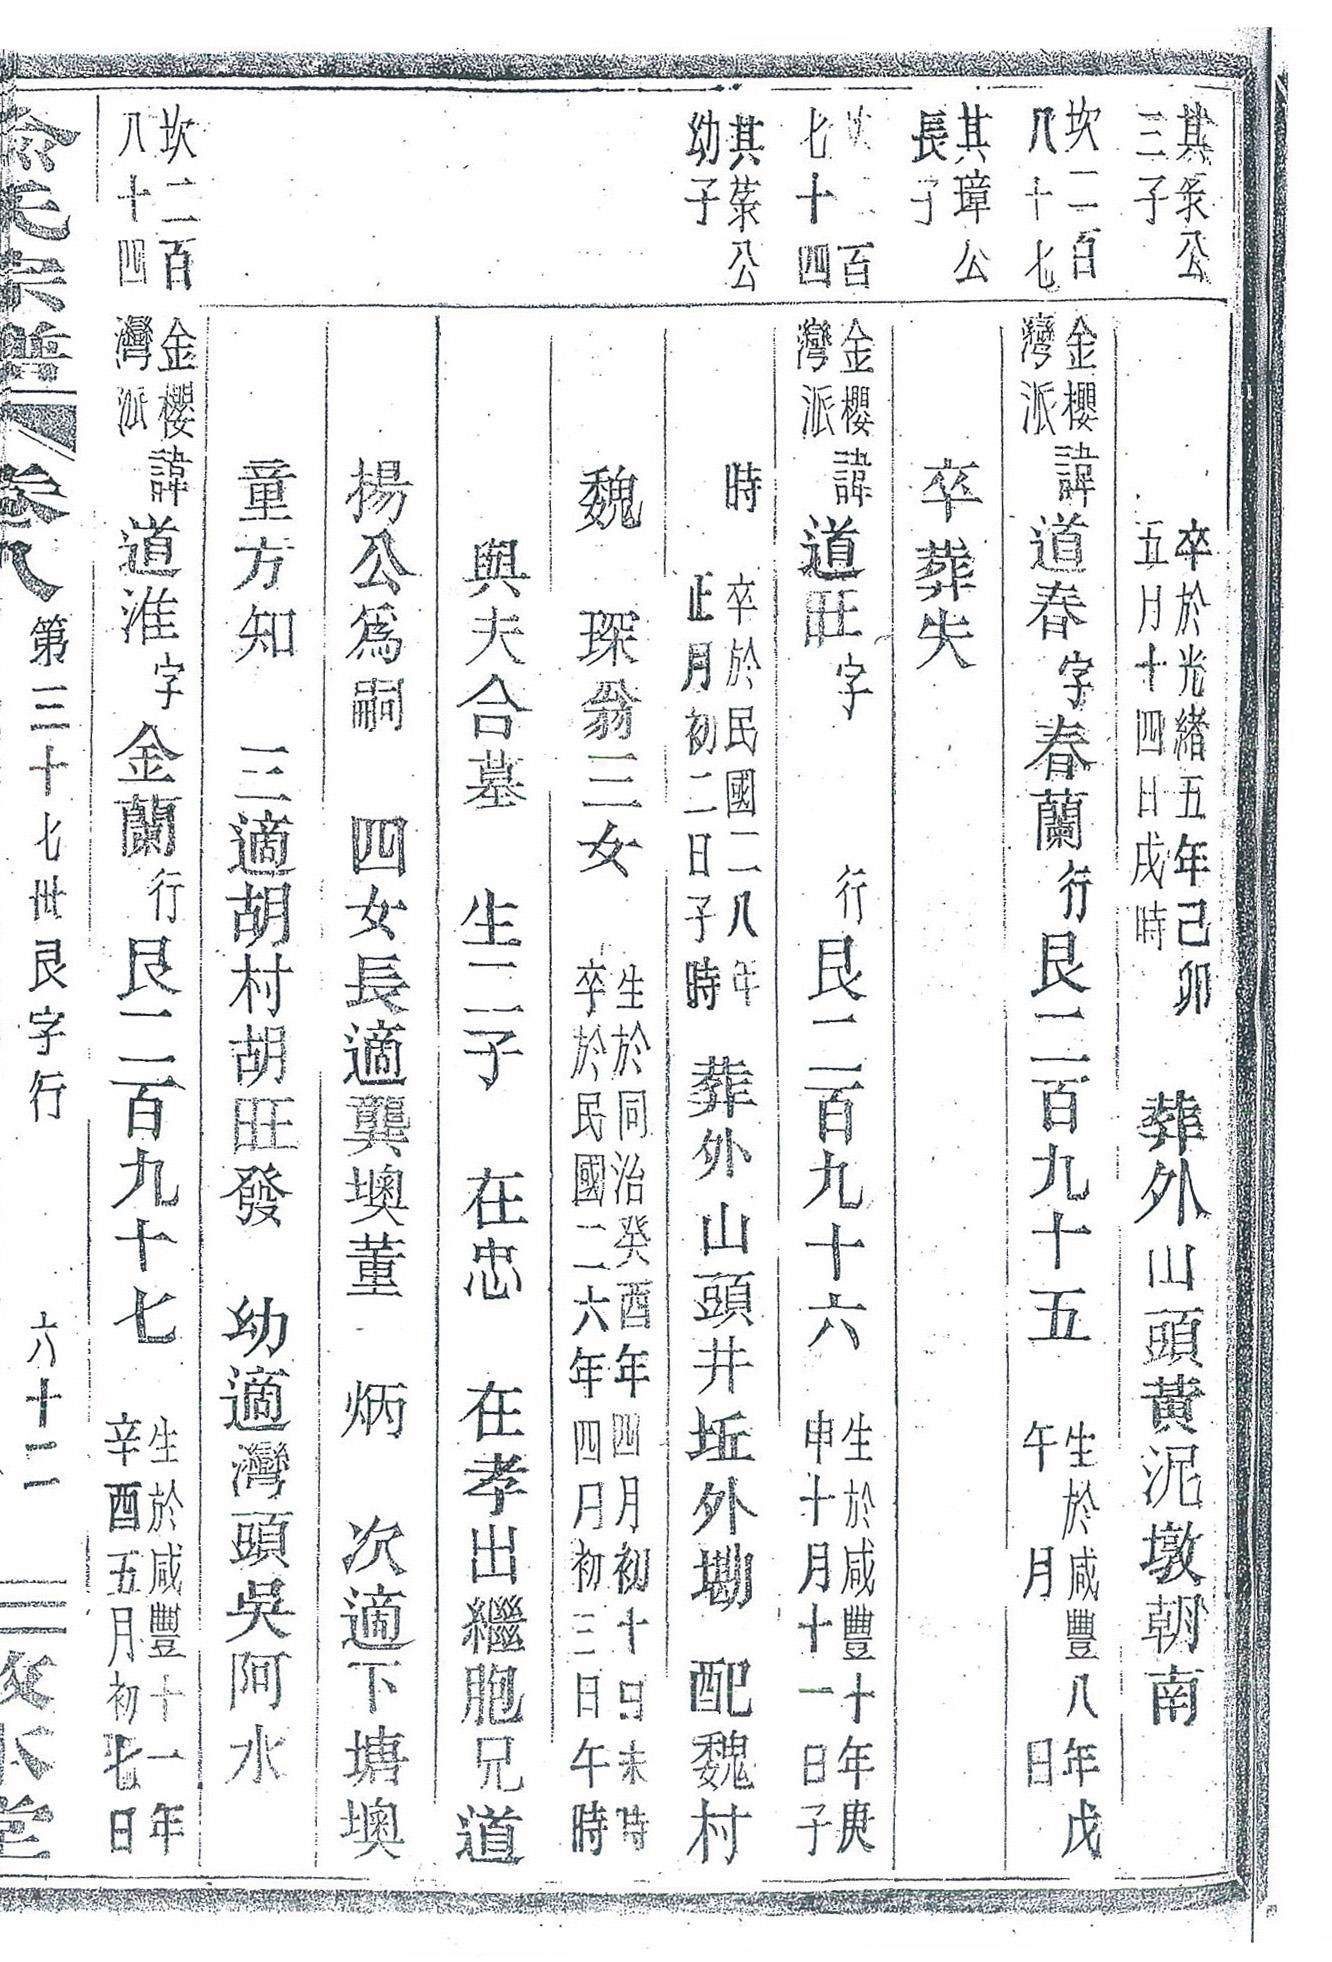 其汞公
三子
卒於光緒五年己卯
五月十四日戌時
葬外山頭黃泥墩朝南
坎二百
八十七
金櫻
灣派
諱道春字春蘭行艮二百九十五
生於咸豐八年戊
午 月 日
其璋公
長子
卒葬失
百
七十四
金櫻
灣派
諱道旺字 行艮二百九十六
生於咸豐十年庚
申十月十一日子
其棻公
幼子
時
卒於民國二八年
正月初二日子時
葬外山頭井坵外墈 配魏村
魏 琛翁三女
生於同治癸酉年四月初十日未時
卒於民國二六年四月初三日午時
與夫合墓 生二子 在忠 在孝出繼胞兄道
揚公爲嗣 四女長適龔墺董 炳 次適下塘墺
童方知 三適胡村胡旺發 幼適灣頭吳阿水
坎二百
八十四
金櫻
灣派
諱道淮字金蘭行艮二百九十七
生於咸豐十一年
辛酉五月初七日
氏宗譜 卷八 第三十七世艮字行 六十二 堂